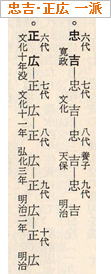 忠吉・正広 一派
六代 七代 八代 養子 九代
○忠吉―忠吉―忠吉―忠吉
寛政 文化 天保 明治
六代 七代 八代 九代
○正広―正広―正広―正広
文化十年没 文化十一年 弘化三年 明治二年